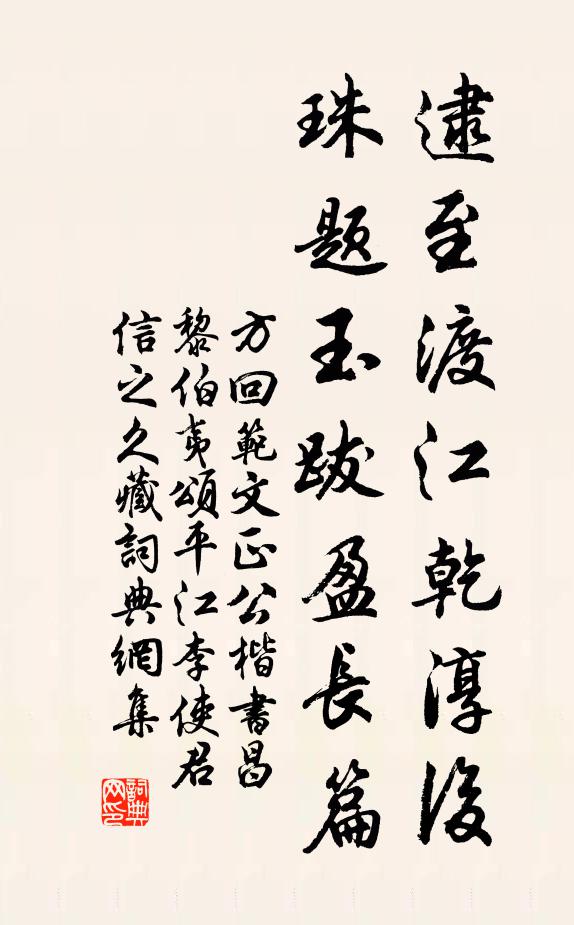 逮至渡江乾淳後
珠題玉跋盈長篇
方回範文正公楷書昌
黎伯夷頌平江李使君
信之久藏詞典網集
詞典網印